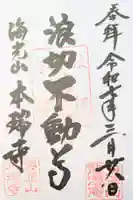 奉拝 令和 年三月 日
浪切不動尊
海光山 本瑞寺